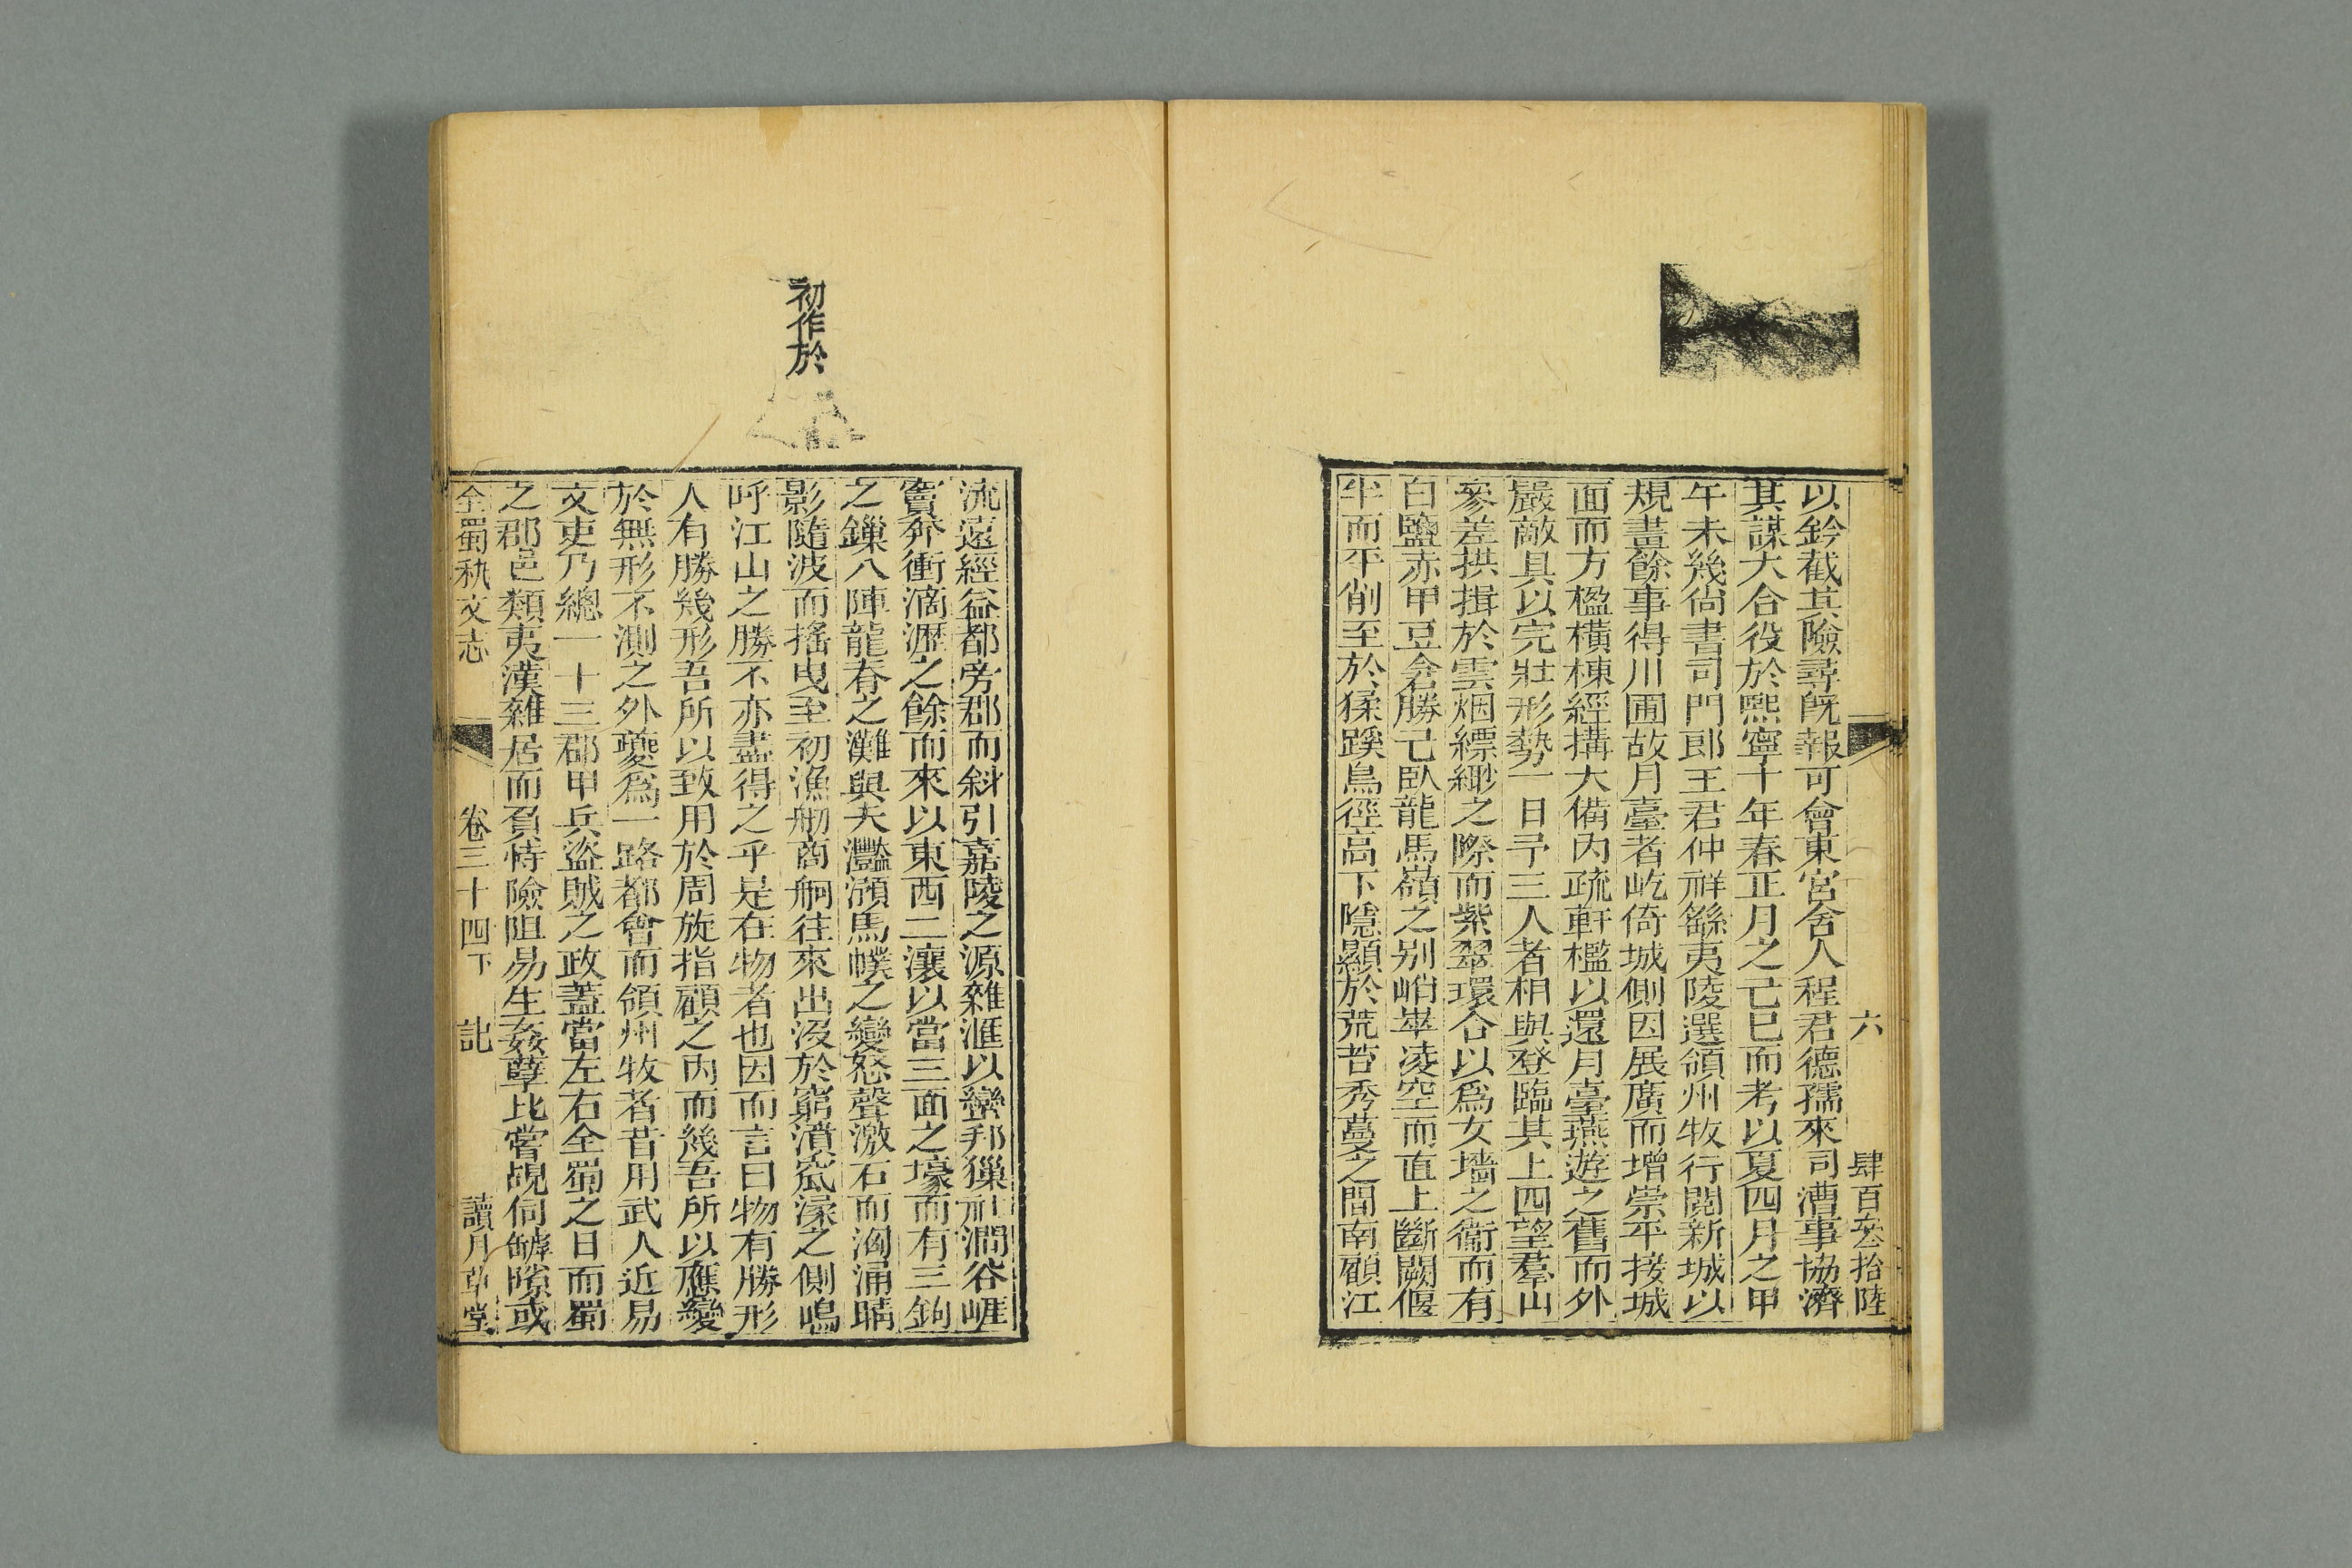 六 肆百叁拾陸
以鈐截其險尋旣報可會東宮舍人程君德孺來司漕事協濟
其謀大合役於熙寧十年春正月之己巳而考以夏四月之甲
午未幾尙書司門郎王君仲祥繇夷陵選領州牧行閱新城以
規畫餘事得川圃故月臺者屹倚城側因展廣而增崇平接城
面而方楹橫棟經搆大備內疏軒檻以還月臺燕遊之舊而外
嚴敵具以完壯形勢一日予三人者相與登臨其上四望羣山
參差拱揖於雲烟縹緲之際而紫翠環合以爲女墻之衞而有
白鹽赤甲豆倉勝己臥龍馬嶺之别峭崒凌空而直上斷闕偃
半而平削至於猱蹊鳥徑高下隱顯於荒苔秀蔓之間南顧江
流遠經益都旁郡而斜引嘉陵之源雜滙以蠻邦獠社澗谷崕
竇奔衝滴瀝之餘而來以東西二瀼以當三面之壕而有三鉤
之鏁八陣龍春之灘與夫灩澦馬幞之變怒聲激石而洶涌睛
影隨波而搖曳至初漁舠商舸往來出沒於窮濆窊濠之側嗚
呼江山之勝不亦盡得之乎是在物者也因而言曰物有勝形
人有勝幾形吾所以致用於周旋指顧之內而幾吾所以應變
於無形不測之外夔爲一路都會而領州牧者昔用武人近易
文吏乃總一十三郡甲兵盜賊之政蓋當左右全蜀之日而蜀
之郡邑類夷漢雜居而負恃險阻易生姦孽比嘗覘伺罅隙或
全蜀秇文志 卷三十四下 記 讀月草堂
初作於